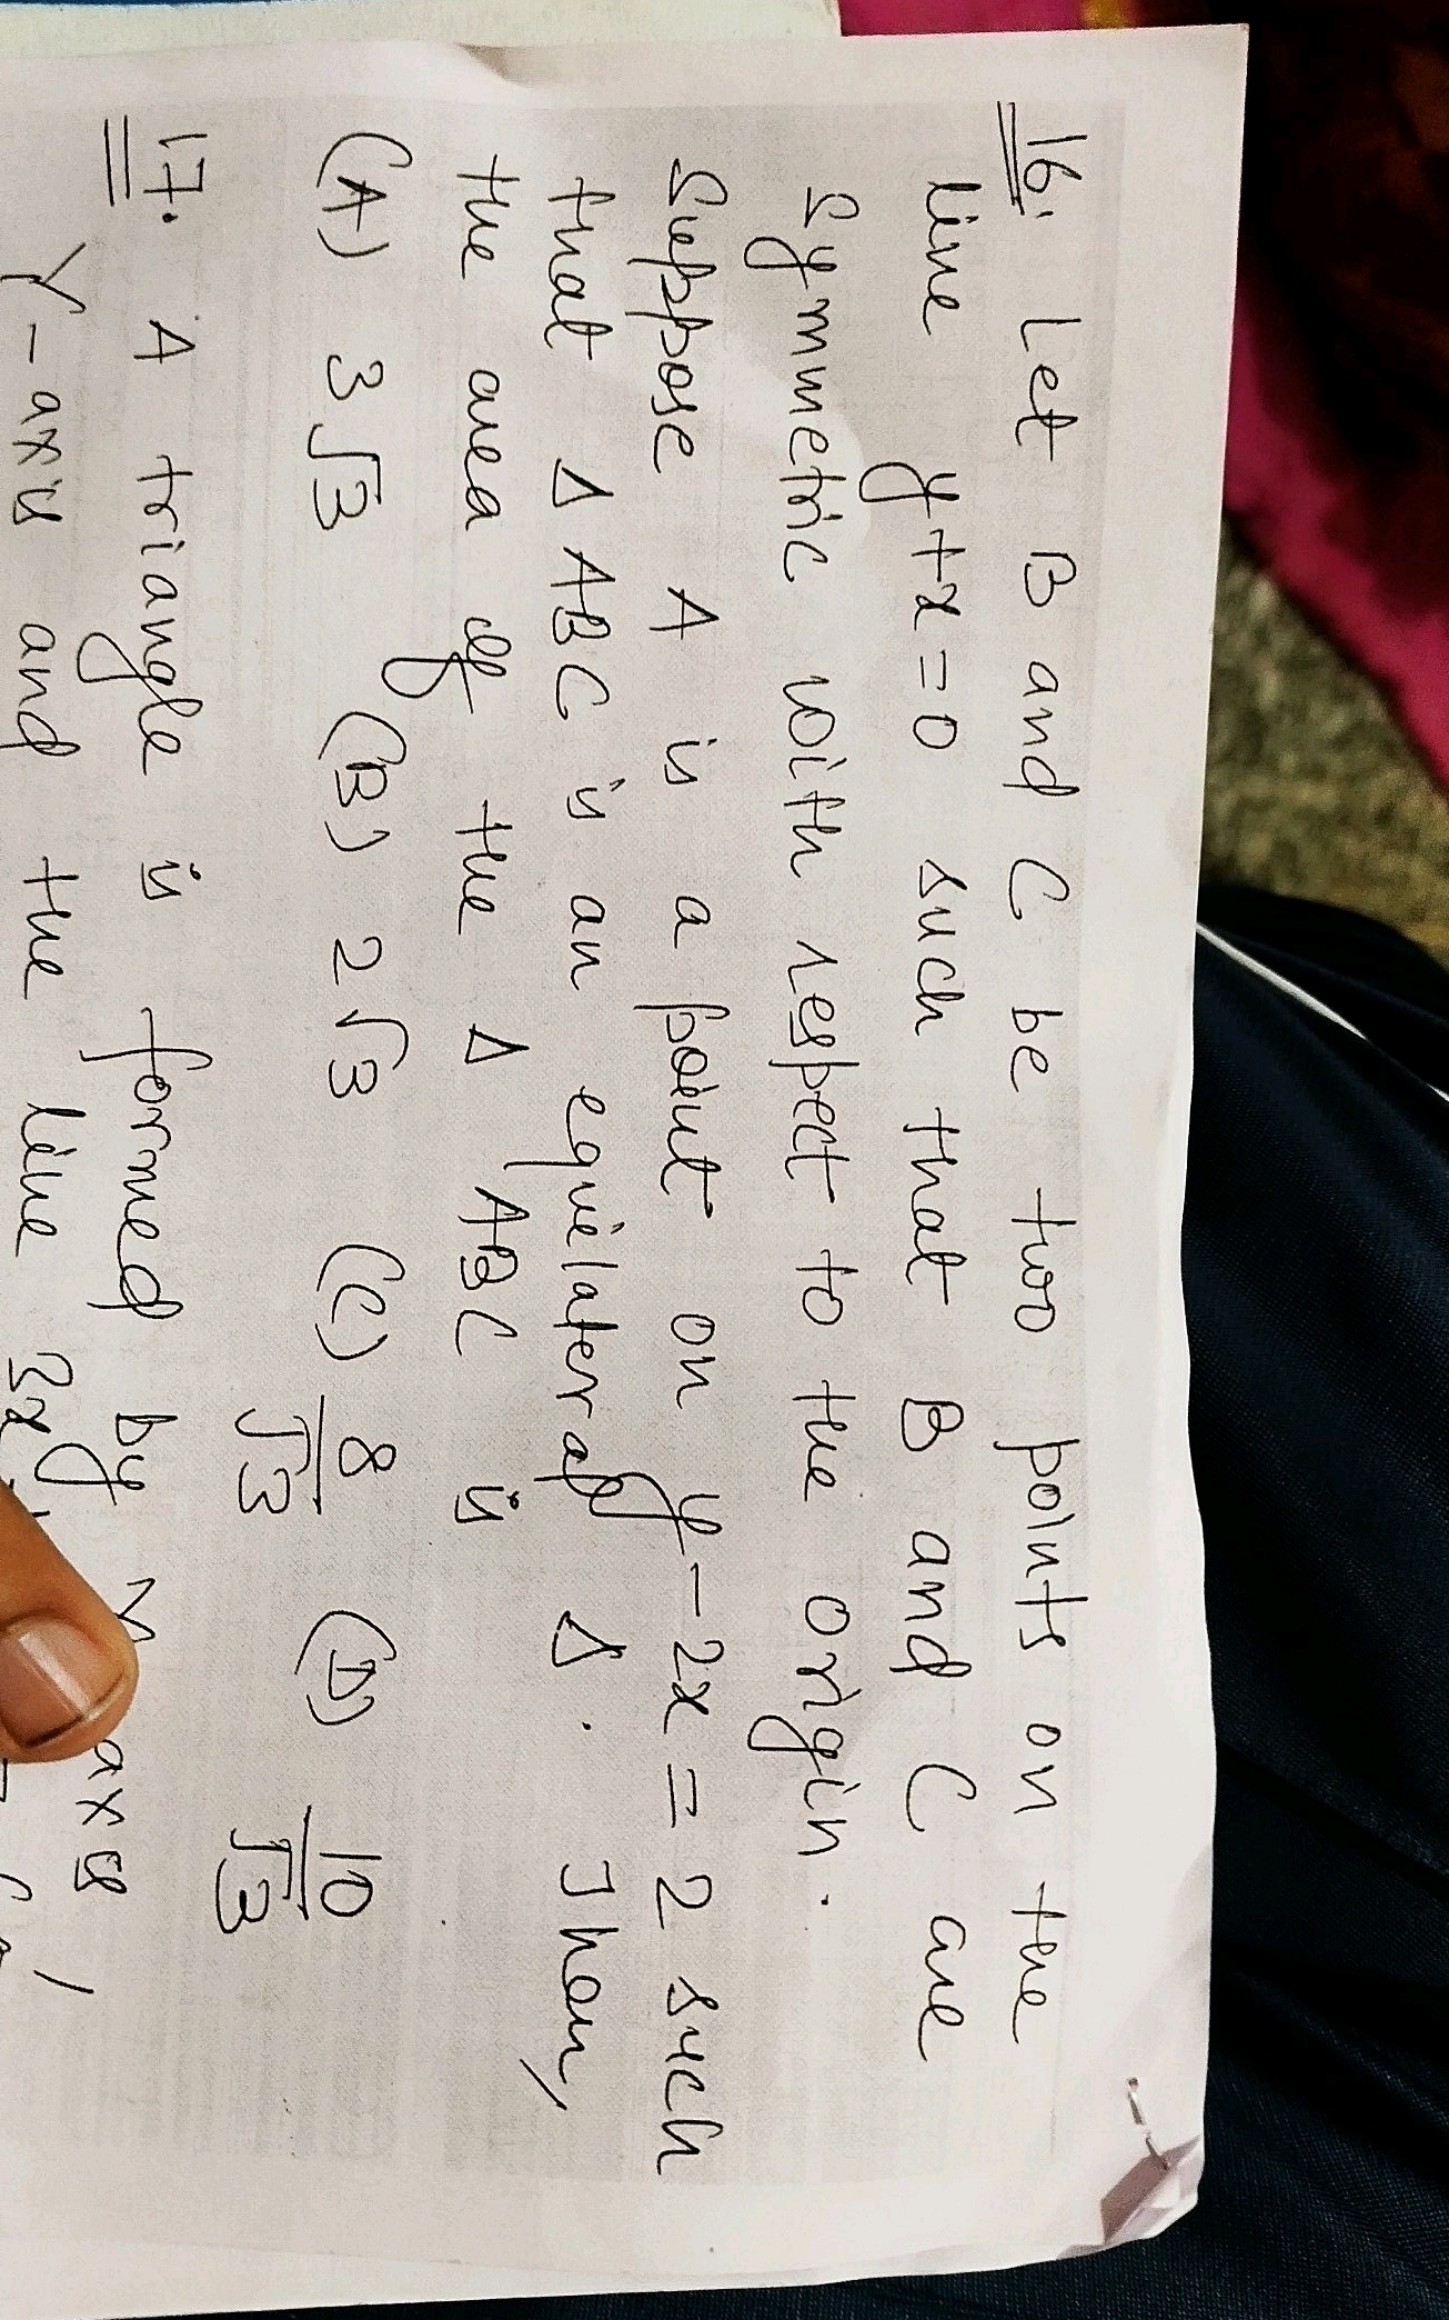 16. Let B and C be two points on the
line y+x=0 such that B and C are
symmetric with respect to the origin.
Suppose A is a point on y-2x=2 such
that Δ ABC is an equilateral Δ. Then,
the area of the Δ ABC is
(A) 3√3 (B) 2√3 (C) 8/√3 (D) 10/√3
17. A triangle is formed by X axis
Y-axis and the line 3x